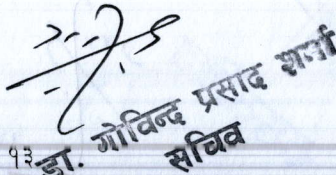 १३
डा. गोविन्द प्रसाद शर्मा
सचिव